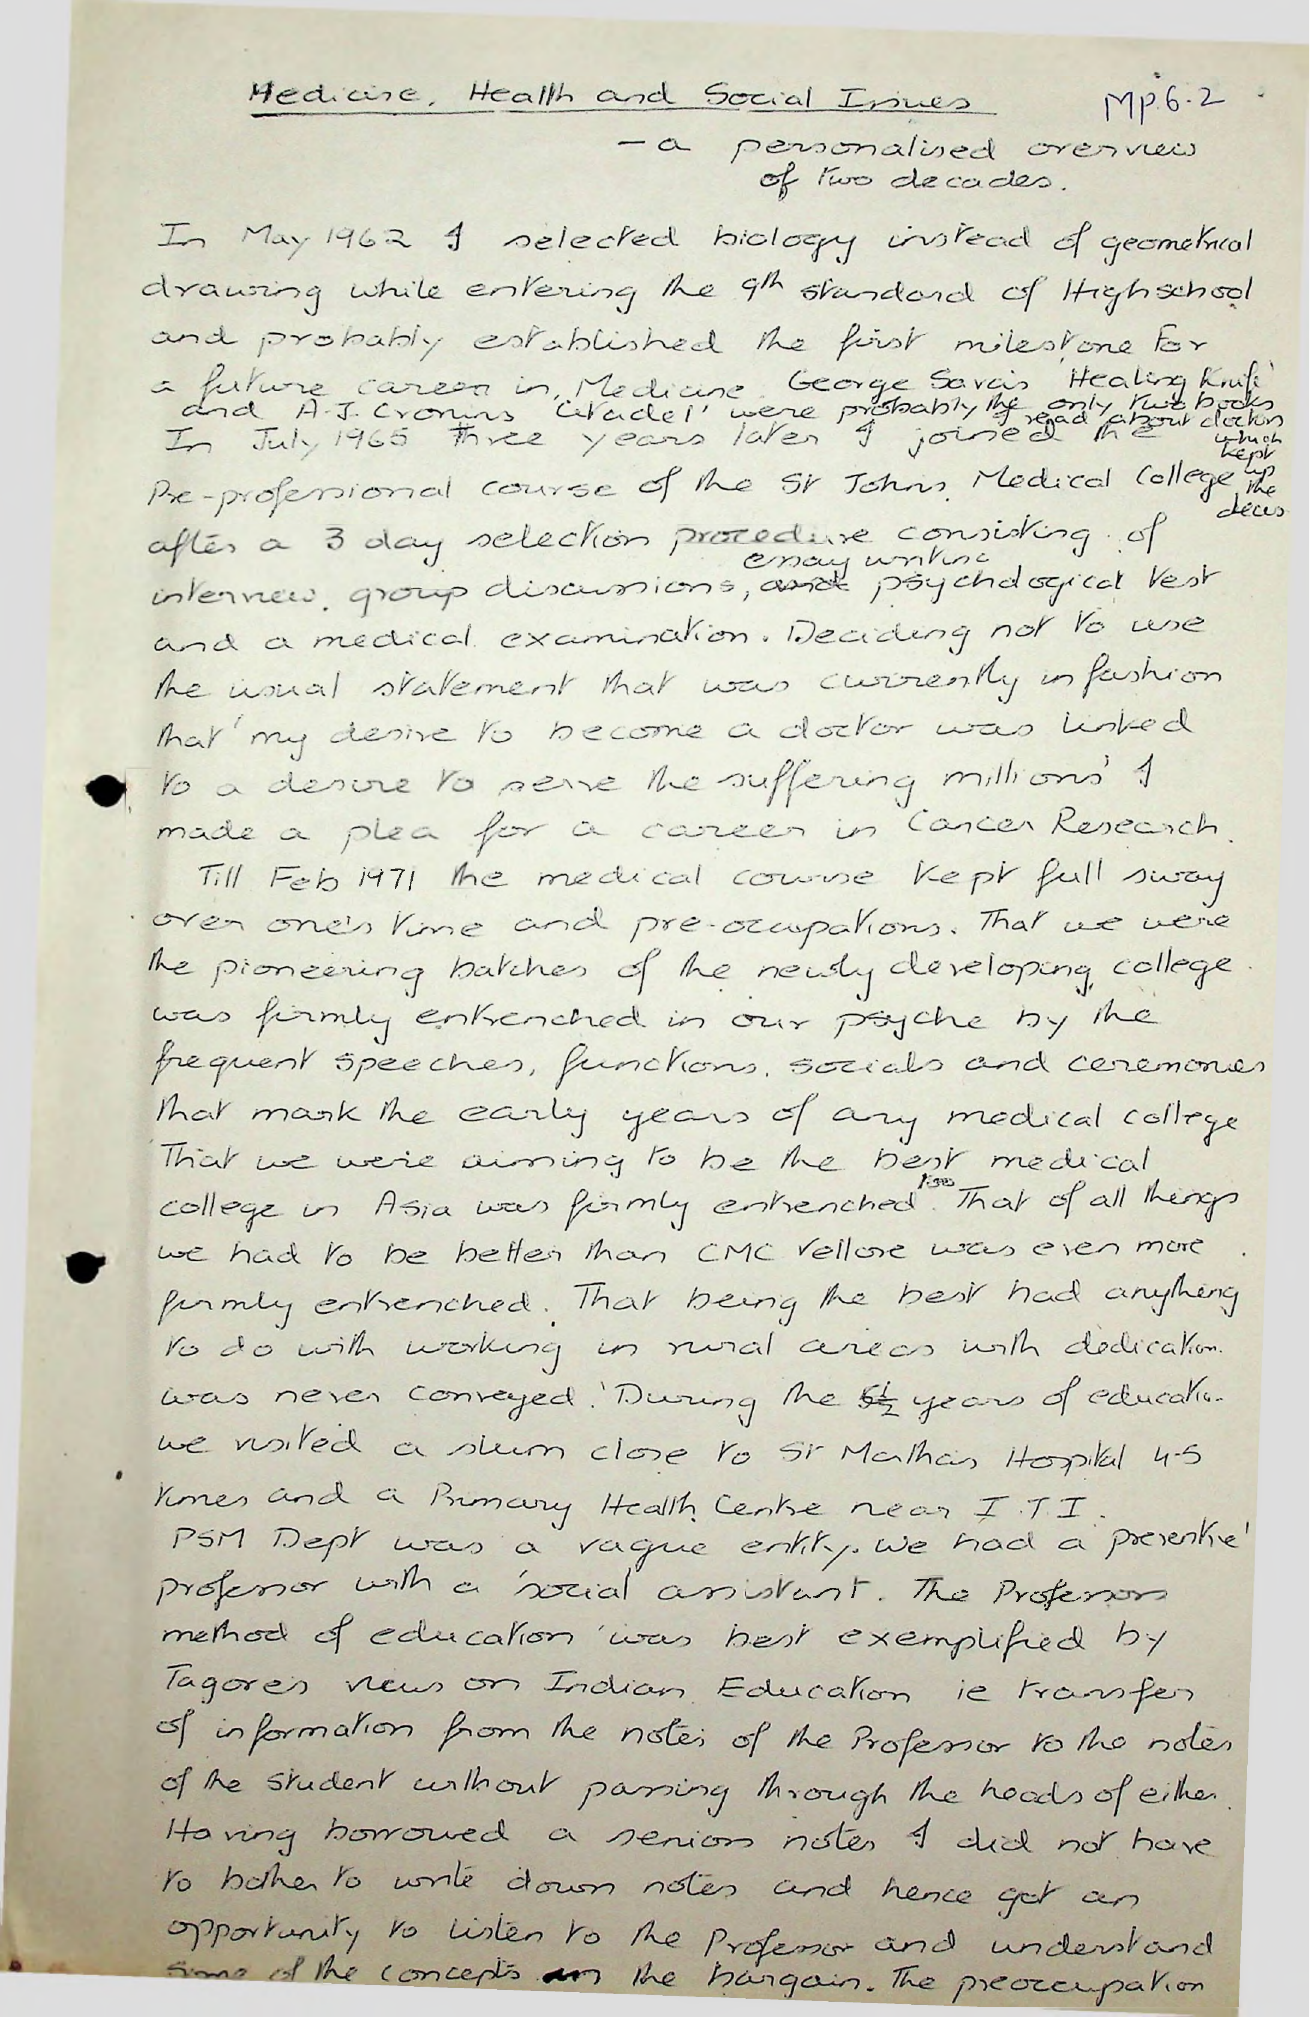 Medicine, Health and Social Issues
MP.6.2
- a personalised overview
of two decades.
In May 1962 I selected biology instead of geometrical
drawing while entering the 9th standard of Highschool
and probably established the first milestone for
a future career in Medicine. George Savas 'Healing Knife'
and A.J. Cronins 'Citadel' were probably the only two books
I read about doctors
which
kept
up
the
In July 1965 three years later I joined the
Pre-professional course of the St Johns Medical College
after a 3 day selection procedure consisting of
essay writing
interview, group discussions, and psychological test
and a medical examination. Deciding not to use
the usual statement that was currently in fashion
that 'my desire to become a doctor was linked
to a desire to serve the suffering millions' I
made a plea for a career in Cancer Research.
Till Feb 1971 the medical course kept full sway
over one's time and pre-occupations. That we were
the pioneering batches of the newly developing college
was firmly entrenched in our psyche by the
frequent speeches, functions, socials and ceremonies
that mark the early years of any medical college
That we were aiming to be the best medical
college in Asia was firmly entrenched too. That of all things
we had to be better than CMC Vellore was even more
firmly entrenched. That being the best had anything
to do with working in rural areas with dedication
was never conveyed! During the 5½ years of education
we visited a slum close to St Marthas Hospital 4-5
times and a Primary Health Centre near I.T.I.
PSM Dept was a vague entity. We had a 'preventive'
professor with a 'social' assistant. The Professors
method of education was best exemplified by
Tagores views on Indian Education ie transfer
of information from the notes of the Professor to the notes
of the student without passing through the heads of either.
Having borrowed a seniors notes I did not have
to bother to write down notes and hence got an
opportunity to listen to the Professor and understand
some of the concepts in the bargain. The preoccupation